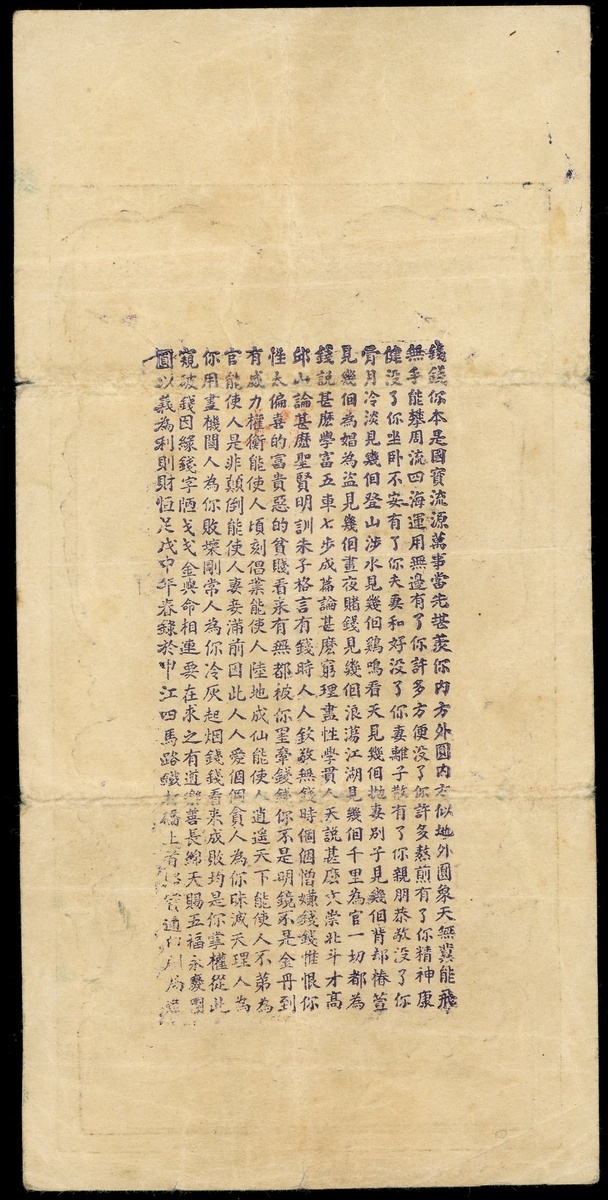 錢錢你本是國寶流源萬事當先堪羨你內方外圓內方似地外圓象天無冀能飛
無手能攀周流四海運用無邊有了你許多方便沒了你許多熬煎有了你精神康
健没了你坐卧不安有了你夫妻和好没了你妻離子散有了你親朋恭敬没了你
骨月冷淡見幾個登山涉水見幾個鷄鳴看天見幾個拋妻別子見幾個背却椿萱
見幾個為娼為盜見幾個晝夜賭錢見幾個浪蕩江湖見幾個千里為官一切都為
錢説甚麽學富五車七步成篇論甚麽窮理盡性學貫人天説甚麽文崇北斗才高
邱山論甚麽聖賢明訓朱子格言有錢時人人欽敬無錢時個個憎嫌錢錢惟恨你
性太偏喜的富貴惡的貧賤看來有無都被你罣牽錢錢你不是明鏡不是金丹到
有威力權衡能使人頃刻倡業能使人陸地成仙能使人逍遥天下能使人不第為
官能使人是非顛倒能使人妻妾滿前因此人人愛個個貪人為你昧滅天理人為
你用盡機關人為你敗壞剛常人為你冷灰起烟錢錢看來成敗均是你掌權從此
窺破錢因緣錢字陋戈戈金與命相連要在求之有道樂善長綿天賜五福永慶團
圓以義為利則財恒足戊申年春錄於申江四馬路鐵大橋上首